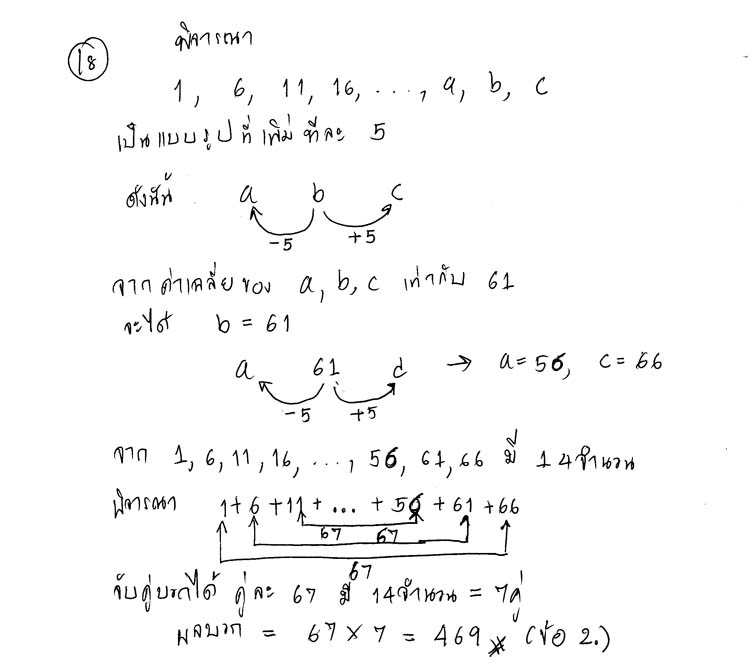 18
พิจารณา
1, 6, 11, 16, ..., a, b, c
เป็นแบบรูปที่เพิ่มทีละ 5
ดังนั้น a b c
-5 +5
จากค่าเฉลี่ยของ a, b, c เท่ากับ 61
จะได้ b = 61
a 61 c → a = 56, c = 66
-5 +5
จาก 1, 6, 11, 16, ..., 56, 61, 66 มี 14 จำนวน
พิจารณา 1 + 6 + 11 + ... + 56 + 61 + 66
67 67
67
จับคู่บวกได้ คู่ละ 67 มี 14 จำนวน = 7 คู่
ผลบวก = 67 × 7 = 469 (ข้อ 2.)